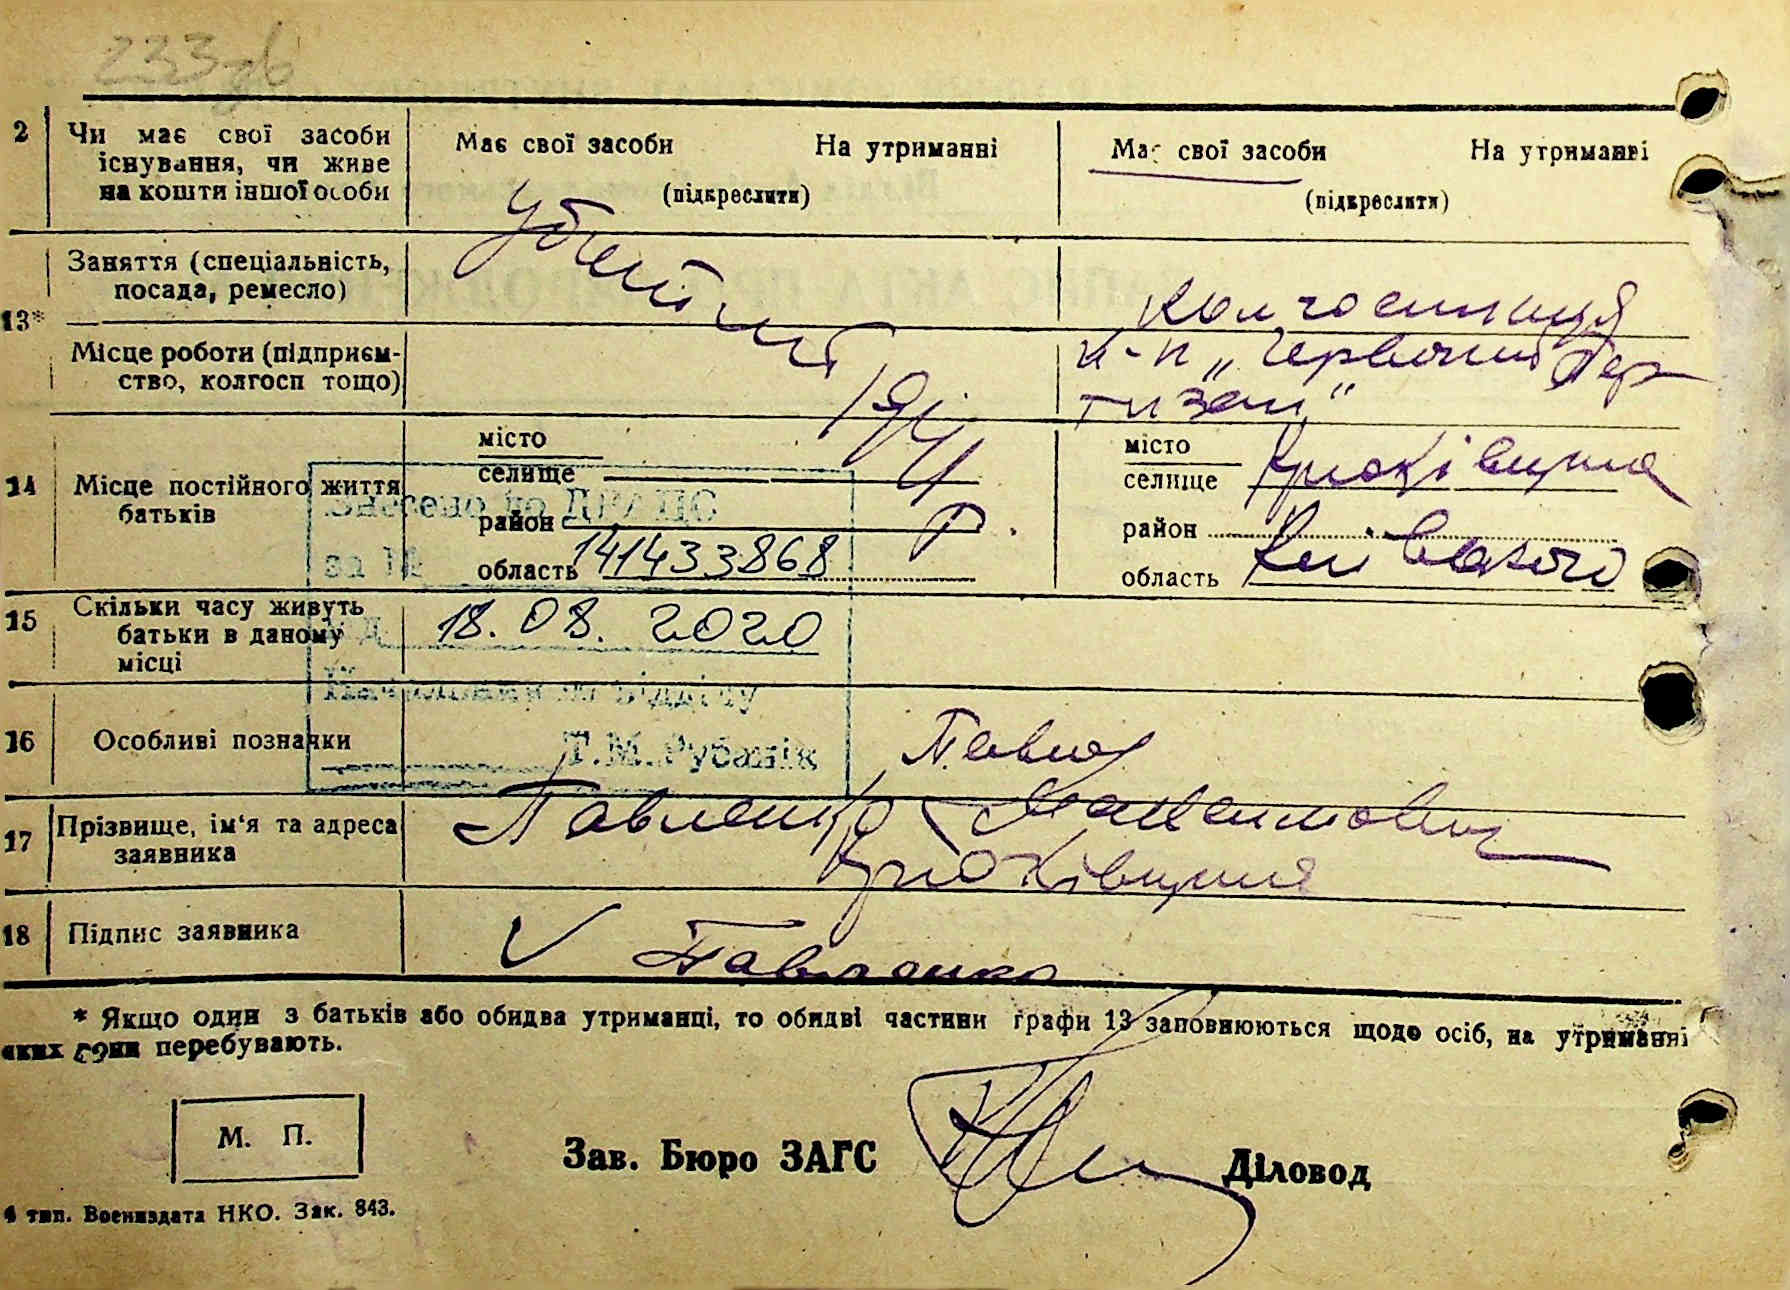 233зв
2 Чи має свої засоби існування, чи живе на кошти іншої особи
Має свої засоби На утриманні
(підкреслити)
Має свої засоби На утриманні
(підкреслити)
13*
Заняття (спеціальність, посада, ремесло)
Убитий
Колгоспниця
Місце роботи (підприєм-
ство, колгосп тощо)
к-п „Червоний Пар
тизан"
194
р.
14 Місце постійного життя батьків
місто
селище
район
область
місто
селище Крюківщина
район
область Київського
Внесено до ДРАЦС
за №
141433868
15 Скільки часу живуть батьки в даному місці
18.08.2020
Начальник відділу
Т.М. Рубанік
16 Особливі позначки
Павло
17 Прізвище, ім'я та адреса заявника
Павленко Максимович
Крюківщина
18 Підпис заявника
V Павленко
* Якщо один з батьків або обидва утриманці, то обидві частини графи 13 заповнюються щодо осіб, на утриманні
яких вони перебувають.
М. П.
Зав. Бюро ЗАГС
Діловод
4 тип. Воениздата НКО. Зак. 843.